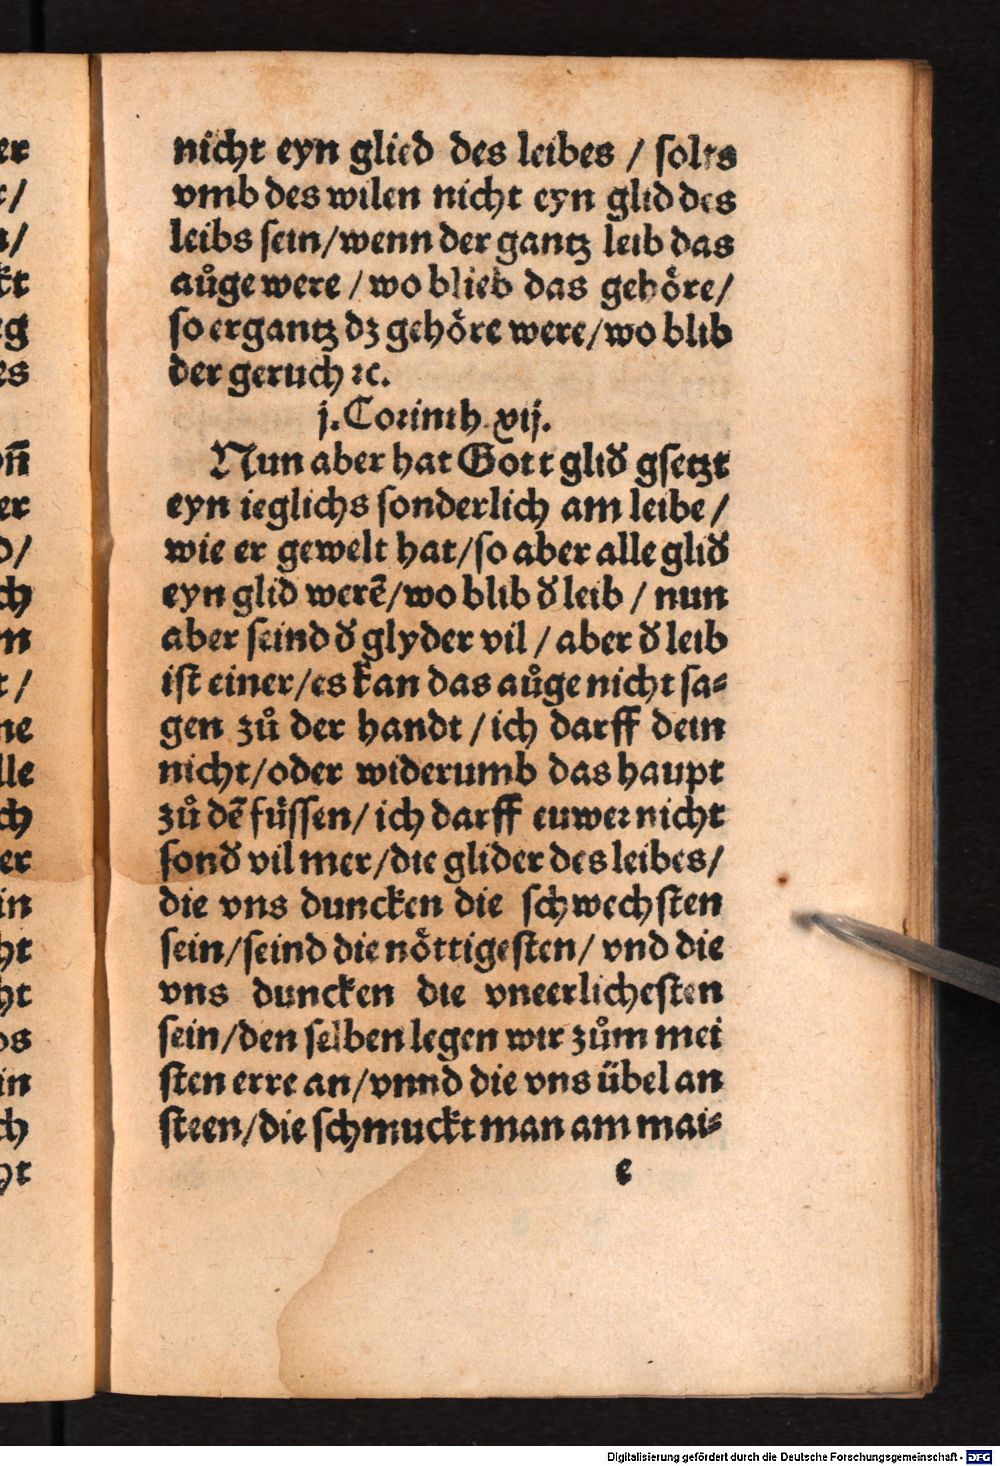 nicht eyn glied des leibes / solts
vmb des wilen nicht eyn glid des
leibs sein/wenn der gantz leib das
aůge were / wo blieb das gehöre/
so er gantz dz gehöre were/wo blib
der geruch ⁊c.
j. Corinth xij.
Nun aber hat Gott glid̕ gsetzt
eyn ieglichs sonderlich am leibe /
wie er gewelt hat/so aber alle glid̕
eyn glid werē/wo blib d̕ leib / nun
aber seind d̕ glyder vil / aber d̕ leib
ist einer/es kan das aůge nicht sa⸗
gen zů der handt / ich darff dein
nicht/oder widerumb das haupt
zů dē füssen/ ich darff euwer nicht
sond̕ vil mer/die glider des leibes/
die vns duncken die schwechsten
sein/seind die nöttigesten/ vnd die
vns duncken die vneerlichesten
sein/den selben legen wir zům mei
sten erre an/vnnd die vns übel an
steen/die schmuckt man am mai⸗
e
er
/
/
kt
eg
es
n̄
er
/
ch
n
t /
ne
lle
ch
er
in
ht
ht
os
in
ch
ht
Digitalisierung gefördert durch die Deutsche Forschungsgemeinschaft - DFG